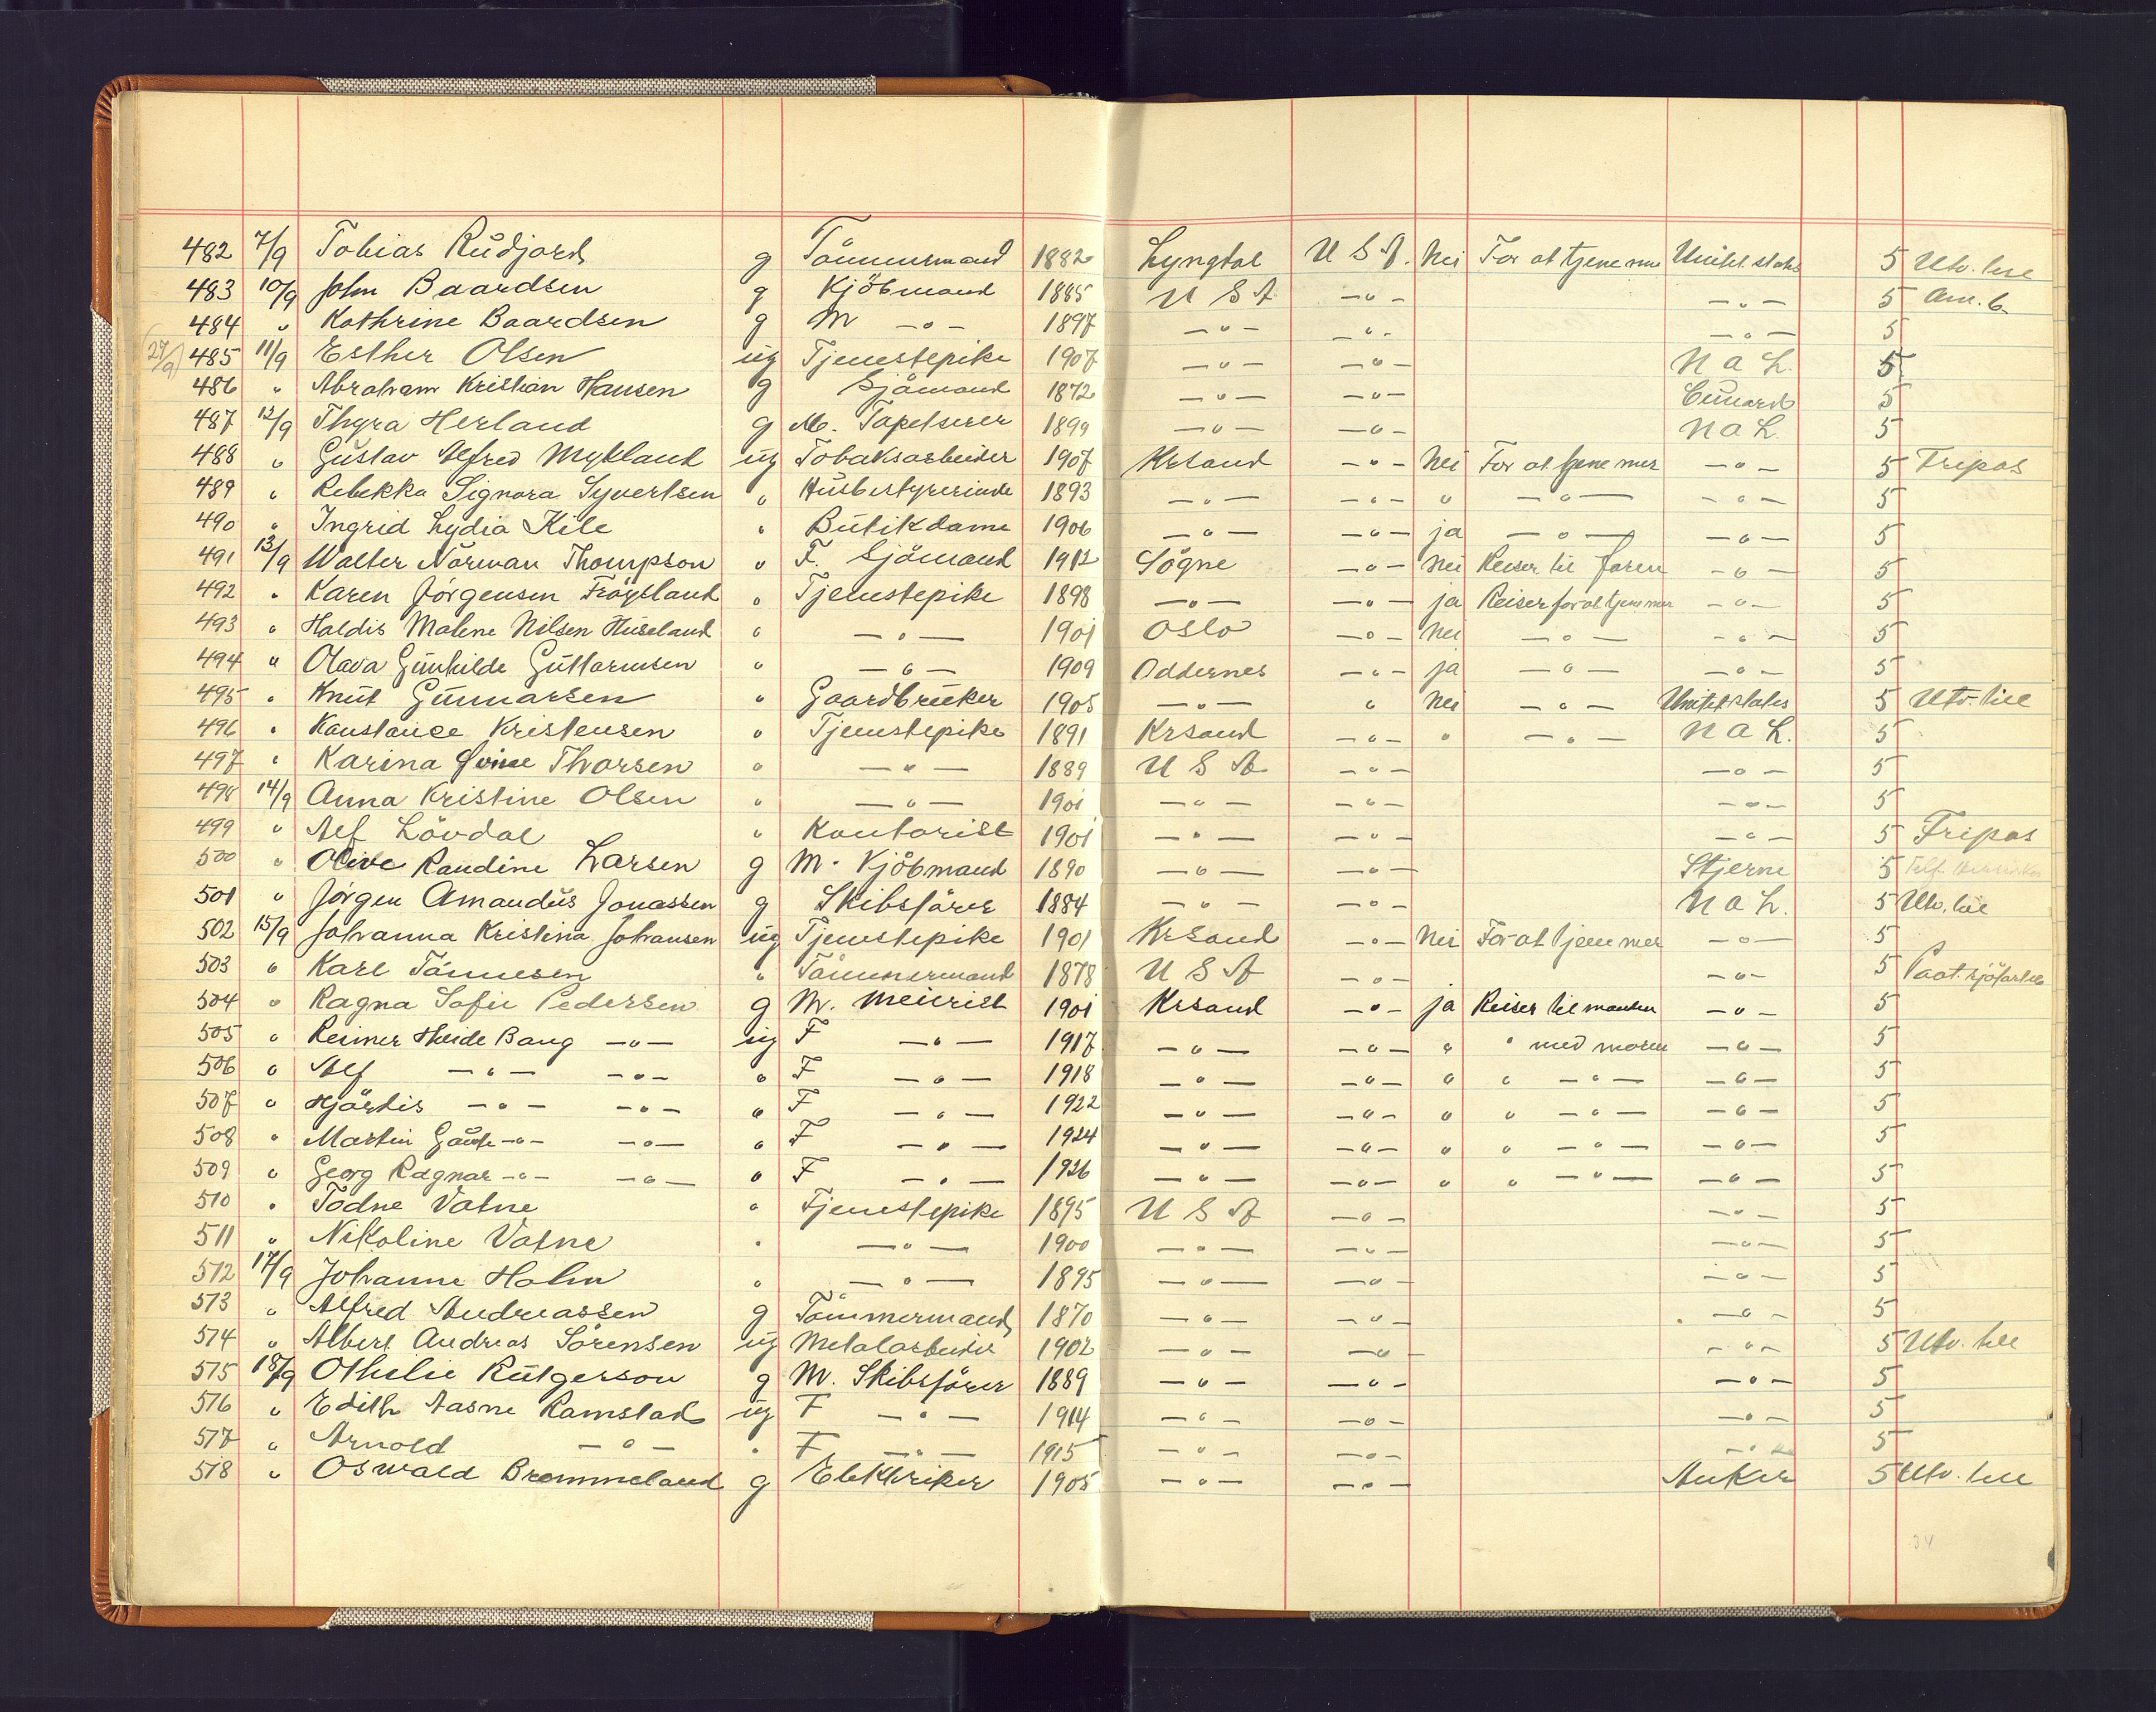 482 7/9 Tobias Rudjord g Tömmermand 1882 Lyngdal U S A. Nei For at tjene mer United states 5 Utv. till
483 10/9 John Baardsen g Kjöbmand 1885 U S A —〃— —〃— 5 Am. b.
484 〃 Kathrine Baardsen g M —〃— 1897 —〃— —〃— —〃— 5
(24/9) 485 11/9 Esther Olsen ug Tjenestepike 1907 —〃— —〃— N A L. 5
486 〃 Abraham Kristian Hansen g Sjömand 1872 —〃— —〃— Cunard 5
487 12/9 Thyra Herland g M. Tapetserer 1899 —〃— —〃— N A L. 5
488 〃 Gustav Alfred Mykland ug Tobaksarbeider 1907 Krsand —〃— Nei For at tjene mer —〃— 5 Fripas
489 〃 Rebekka Signora Syvertsen 〃 Husbestyrerinde 1893 —〃— —〃— 〃 —〃— —〃— 5
490 〃 Ingrid Lydia Kile 〃 Butikdame 1906 —〃— —〃— ja —〃— —〃— 5
491 13/9 Walter Norman Thompson 〃 F. Sjömand 1912 Sögne —〃— Nei Reiser til faren —〃— 5
492 〃 Karen Jörgensen Fröysland 〃 Tjenestepike 1898 —〃— —〃— ja Reiser for at tjene mer —〃— 5
493 〃 Haldis Malene Nilsen Huseland 〃 —〃— 1901 Oslo —〃— Nei —〃— —〃— 5
494 〃 Olava Gunhilde Guttormsen 〃 —〃— 1909 Oddernes —〃— ja —〃— —〃— 5
495 〃 Knut Gunnarsen 〃 Gaardbruker 1905 —〃— 〃 Nei —〃— United states 5 Utv. till
496 〃 Konstance Kristensen 〃 Tjenestepike 1891 Krsand —〃— 〃 —〃— N A L. 5
497 〃 Karina Thorsen 〃 —〃— 1889 U S A —〃— —〃— 5
498 14/9 Anna Kristine Olsen 〃 —〃— 1901 —〃— —〃— —〃— 5
499 〃 Alf Lövdal 〃 Kontorist 1901 —〃— —〃— —〃— 5 Fripas
500 〃 Olive Randine Larsen g M. Kjöbmand 1890 —〃— —〃— Stjerne 5
501 〃 Jörgen Amandus Jonassen g Skibsförer 1884 —〃— —〃— N A L. 5 Utv. till
502 15/9 Johanna Kristina Johansen ug Tjenestepike 1901 Krsand —〃— Nei For at tjene mer —〃— 5
503 〃 Karl Tönnesen 〃 Tömmermand 1878 U S A —〃— —〃— 5 Paat.
504 〃 Ragna Sofie Pedersen g M. Meierist 1901 Krsand —〃— ja Reiser til manden —〃— 5
505 〃 Reimer Heide Bang —〃— ug F —〃— 1917 —〃— —〃— 〃 〃 med moren —〃— 5
506 〃 Alf —〃— —〃— 〃 F —〃— 1918 —〃— —〃— 〃 〃 —〃— —〃— 5
507 〃 Hjördis —〃— —〃— 〃 F —〃— 1922 —〃— —〃— 〃 〃 —〃— —〃— 5
508 〃 Martin Gaute —〃— —〃— 〃 F —〃— 1924 —〃— —〃— 〃 〃 —〃— —〃— 5
509 〃 Georg Ragnar —〃— —〃— 〃 F —〃— 1926 —〃— —〃— 〃 〃 —〃— —〃— 5
510 〃 Todne Vatne 〃 Tjenestepike 1895 U S A —〃— —〃— 5
511 〃 Nikoline Vatne 〃 —〃— 1900 —〃— —〃— —〃— 5
512 17/9 Johanne Holm 〃 —〃— 1895 —〃— —〃— —〃— 5
513 〃 Alfred Andreassen g Tömmermand 1870 —〃— —〃— —〃— 5
514 〃 Albert Andreas Sörensen ug Metalarbeider 1902 —〃— —〃— —〃— 5 Utv. till
515 18/9 Othelie Rutgerson g M. Skibsförer 1889 —〃— —〃— —〃— 5
516 〃 Edith Aasne Ramstad ug F —〃— 1914 —〃— —〃— —〃— 5
517 〃 Arnold —〃— 〃 F —〃— 1915 —〃— —〃— —〃— 5
518 〃 Oswald Brommeland g Elektriker 1905 —〃— —〃— Anker 5 Utv. till